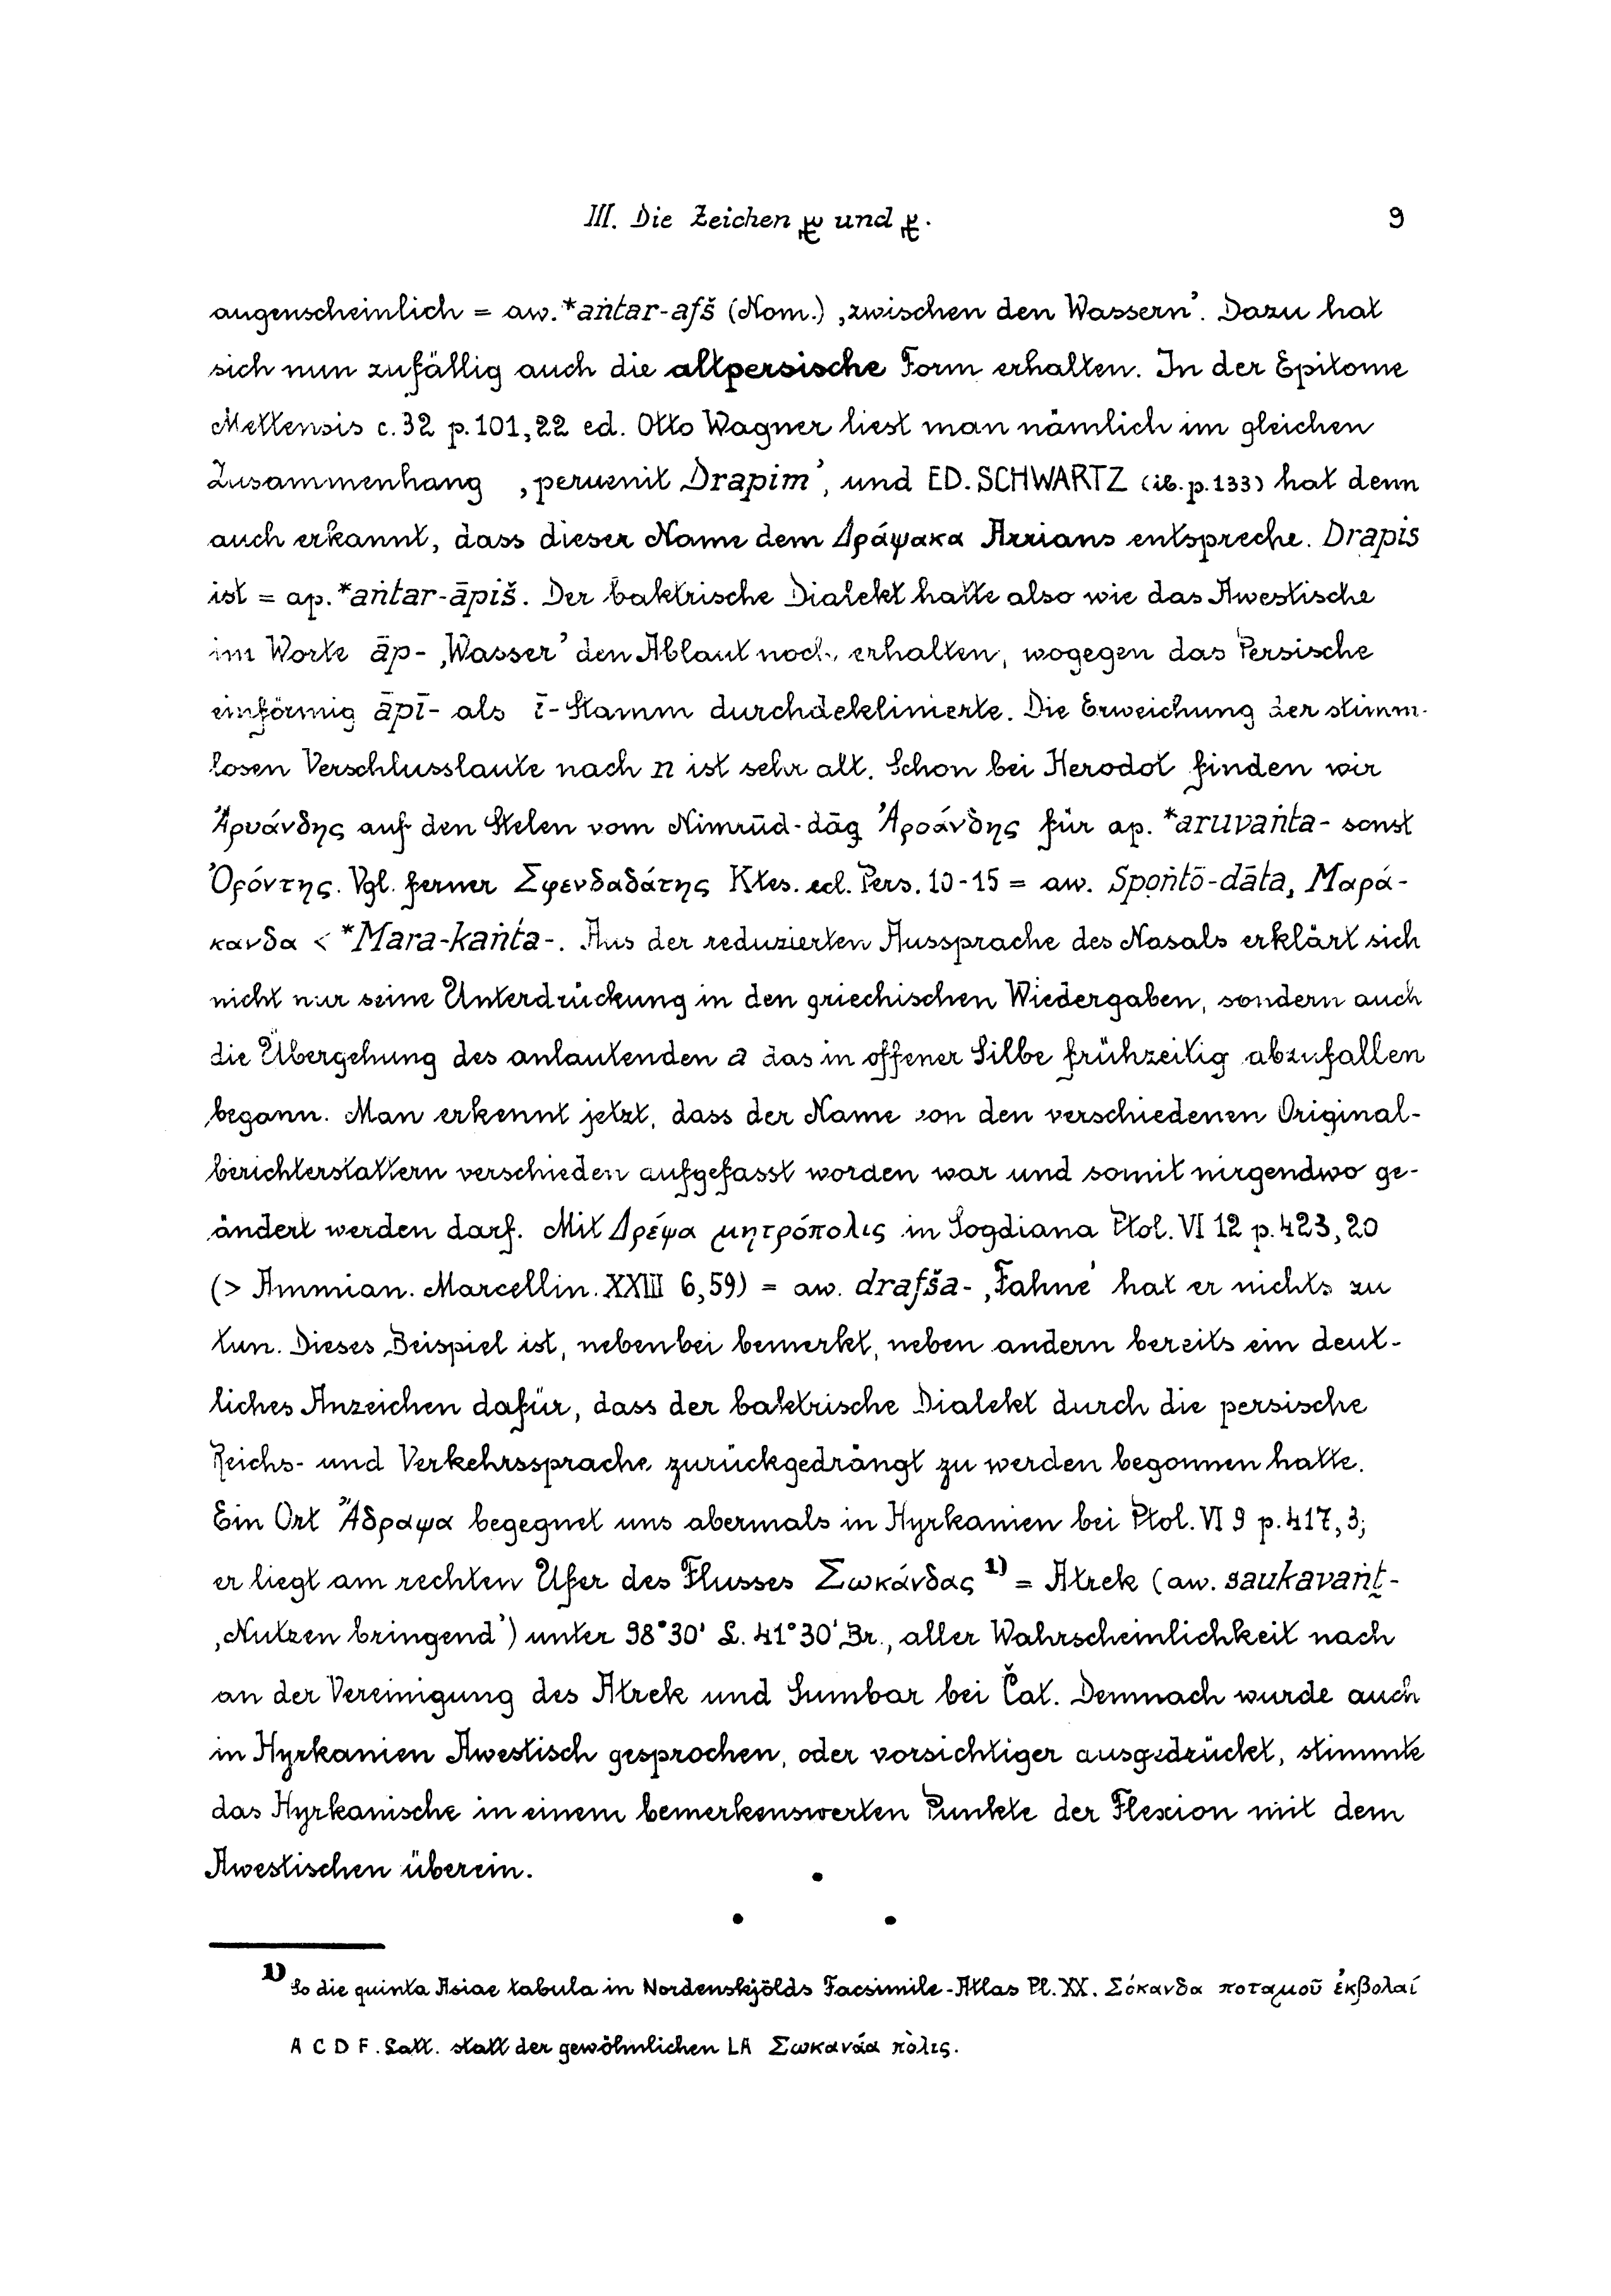 III. Die Zeichen und . 9
augenscheinlich = aw. *aṅtar-afš (Nom.) ‚zwischen den Wassern’. Dazu hat
sich nun zufällig auch die altpersische Form erhalten. In der Epitome
Mettensis c. 32 p. 101,22 ed. Otto Wagner liest man nämlich im gleichen
Zusammenhang ‚peruenit Drapim’, und ED. SCHWARTZ (ib. p. 133) hat denn
auch erkannt, dass dieser Name dem Δράψακα Arrians entspreche. Drapis
ist = ap. *aṅtar-āpiš. Der baktrische Dialekt hatte also wie das Awestische
im Worte āp- ‚Wasser’ den Ablaut noch erhalten, wogegen das Persische
einförmig āpī- als ī-Stamm durchdeklinierte. Die Erweichung der stimm-
losen Verschlusslaute nach n ist sehr alt. Schon bei Herodot finden wir
Ἀρυάνδης auf den Stelen vom Nimrūd-dāg Ἀροάνδης für ap. *aruvaṅta- sonst
Ὀρόντης. Vgl. ferner Σφενδαδάτης Ktes. ecl. Pers. 10-15 = aw. Spoṅtō-dāta, Μαρά-
κανδα < *Mara-kaṅta-. Aus der reduzierten Aussprache des Nasals erklärt sich
nicht nur seine Unterdrückung in den griechischen Wiedergaben, sondern auch
die Übergehung des anlautenden a das in offener Silbe frühzeitig abzufallen
begann. Man erkennt jetzt, dass der Name von den verschiedenen Original-
berichterstattern verschieden aufgefasst worden war und somit nirgendwo ge-
ändert werden darf. Mit Δρέψα μητρόπολις in Sogdiana Ptol. VI 12 p. 423,20
(> Ammian. Marcellin. XXIII 6,59) = aw. drafša- ‚Fahne’ hat er nichts zu
tun. Dieses Beispiel ist, nebenbei bemerkt, neben andern bereits ein deut-
liches Anzeichen dafür, dass der baktrische Dialekt durch die persische
Reichs- und Verkehrssprache zurückgedrängt zu werden begonnen hatte.
Ein Ort Ἄδραψα begegnet uns abermals in Hyrkanien bei Ptol. VI 9 p. 417,3;
er liegt am rechten Ufer des Flusses Σωκάνδας 1) = Atrek (aw. saukavaṅt̰-
‚Nutzen bringend’) unter 98°30' L. 41°30' Br., aller Wahrscheinlichkeit nach
an der Vereinigung des Atrek und Sumbar bei Čat. Demnach wurde auch
in Hyrkanien Awestisch gesprochen, oder vorsichtiger ausgedrückt, stimmte
das Hyrkanische in einem bemerkenswerten Punkte der Flexion mit dem
Awestischen überein.
1) So die quinta Asiae tabula in Nordenskjölds Facsimile-Atlas Pl. XX. Σόκανδα ποταμοῦ ἐκβολαί
A C D F. Latt. statt der gewöhnlichen LA Σωκανάα πόλις.